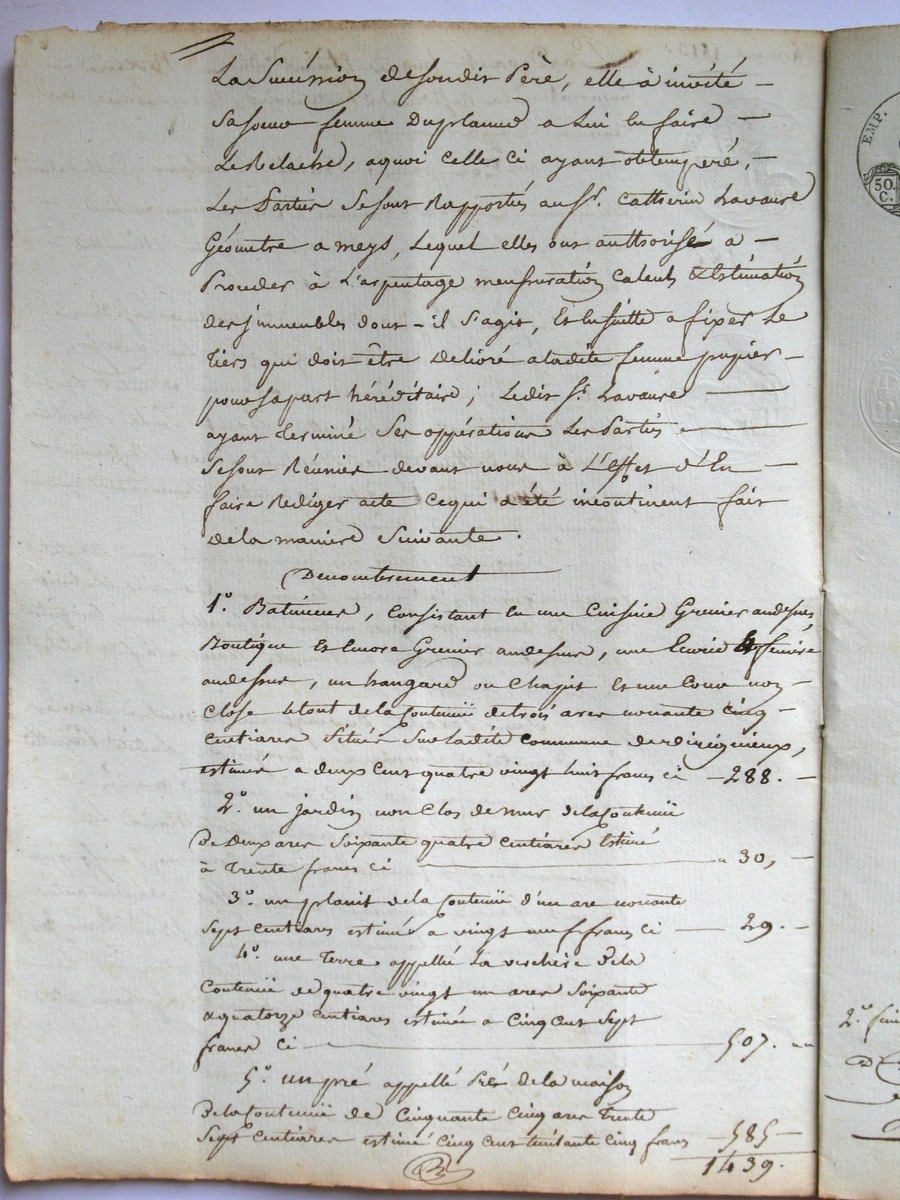 La Succession de Son dit Père, elle à invité
Sa Soeur femme Duplanno a Lui En faire
Le Relache, a quoi celle ci ayant obtempéré,
Les Parties Se Sont Rapportés au Sr. Catherin Lavaure
Géometre a meys, Lequel elles ont authorisé a
Proceder à L'arpentage mensuration Calculs & Estimation
des jmmeubles dont-il S'agit, Et En Suitte a fixer Le
tiers qui doit être Delivré a ladite femme
pour Sa part héréditaire; Ledit Sr. Lavaure
ayant Terminé Ses oppérations Les Parties
Se Sont Réunies devant nous à L'effet d'En
faire Rediger acte Ce qui a été incontinent fait
de la maniere Suivante.
Denombrement
1.° Batiments, Consistant En une Cuisine Grenier au dessus
Boutique Et Encore Grenier au dessus, une Ecurie & feniére
au dessus, un hangard ou Chapit Et une Cour non
Close Le tout de la Contenue de trois ares nonante Cinq
Centiares Situés Sur la dite Commune de
estimés a deux Cent quatre vingt huit francs ci 288.
2.° un jardin non Clos de mur de la Contenue
De Deux ares Soixante quatre Centiares Estimé
à Trente francs Ci 30,
3.° un de la Contenue d'un are nonante
Sept Centiares estimé a vingt neuf francs Ci 29.
4.° une Terre appellée La verchere De la
Contenue de quatre vingt un ares Soixante
a quatorze Centiares estimée a Cinq Cent Sept
francs Ci 507.
5.° un pré appellé Pré de la maison
De la Contenue de Cinquante Cinq ares Trente
Sept Centiares estimé Cinq Cent huitante Cinq francs 585
1439.
EMP.
50.
C.
2.°